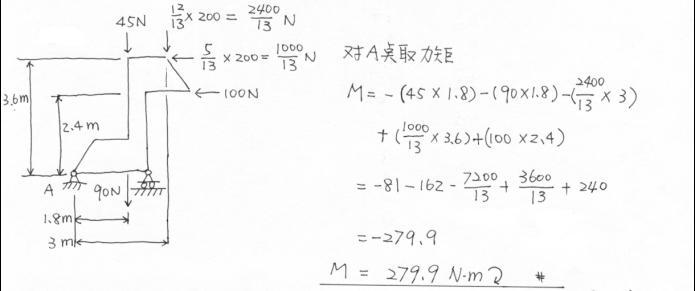 45N
12/13 × 200 = 2400/13 N
5/13 × 200 = 1000/13 N
100N
3.6m
2.4m
A
90N
1.8m
3m
对A点取力矩
M = -(45 × 1.8) - (90 × 1.8) - (2400/13 × 3)
+ (1000/13 × 3.6) + (100 × 2.4)
= -81 - 162 - 7200/13 + 3600/13 + 240
= -279.9
M = 279.9 N·m ↻ #